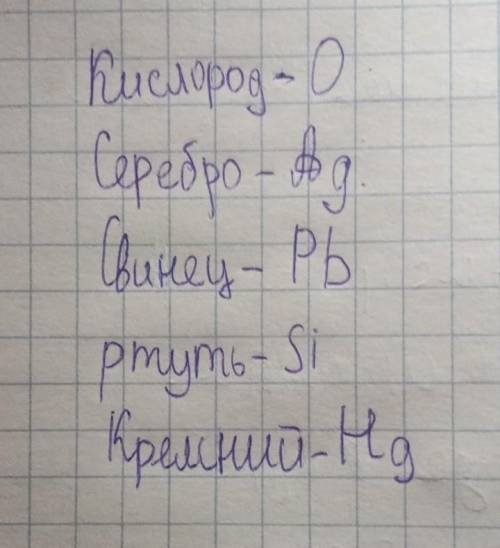 Кислород - O
Серебро - Ag.
Свинец - Pb
ртуть - Si
Кремний - Hg